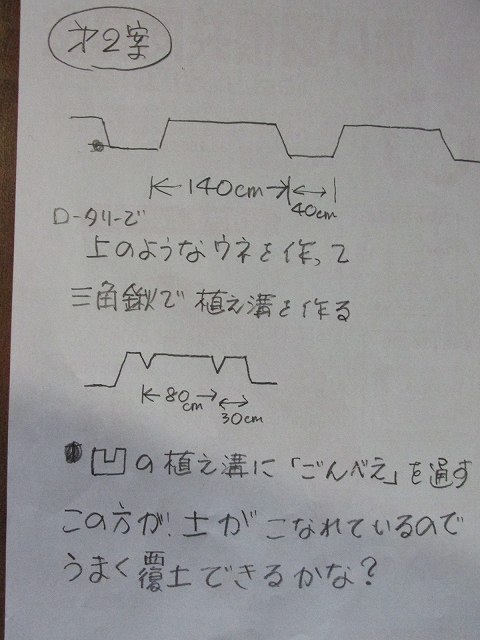 才2案
140cm
40cm
ロータリーで
上のようなウネを作って
三角鍬で植え溝を作る
80cm
30cm
凹の植え溝に「ごんべえ」を通す
この方が!土がこなれているので
うまく覆土できるかな?